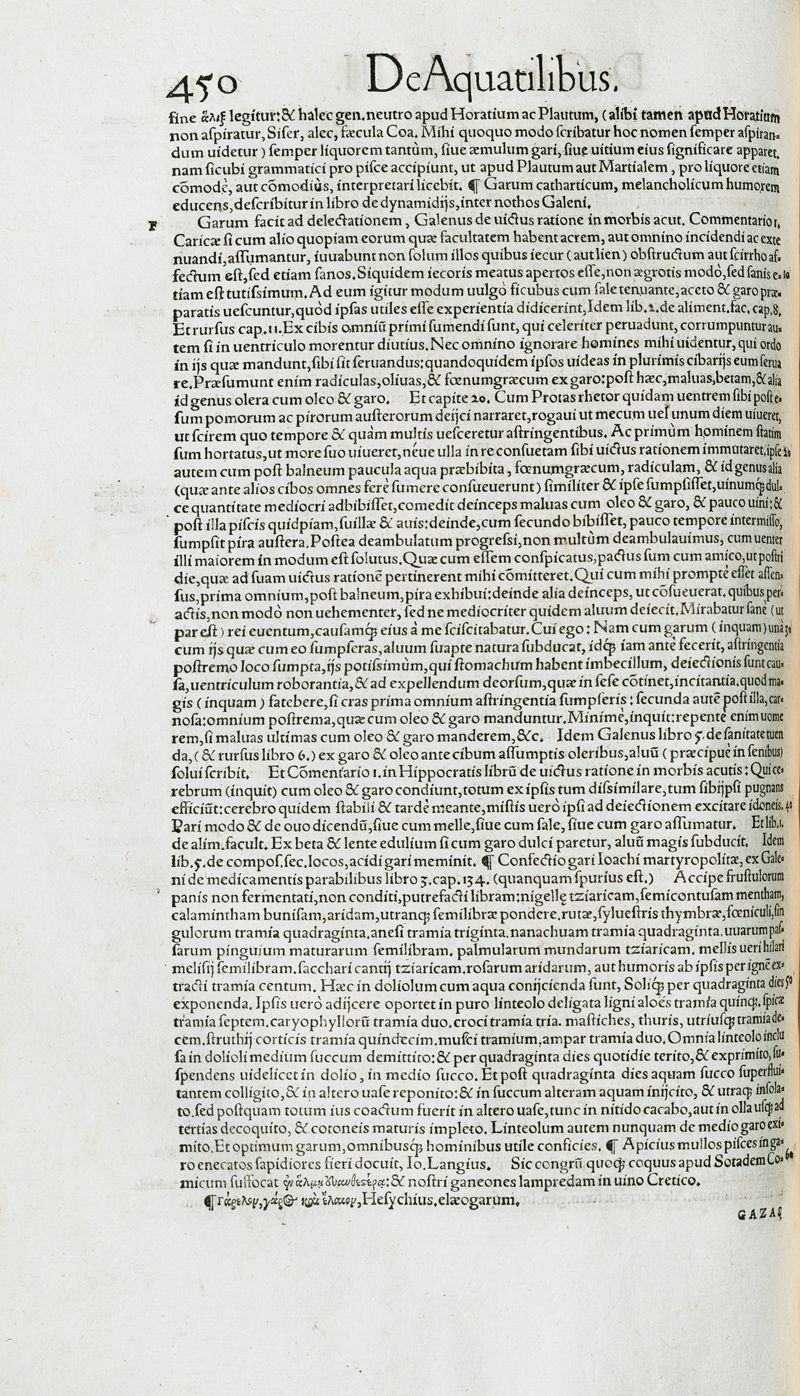 450 De Aquatilibus.
fine ἅλιξ legitur: & halec gen. neutro apud Horatium ac Plautum, (alibi tamen apud Horatium
non aſpiratur, Siſer, alec, fæcula Coa. Mihi quoquo modo ſcribatur hoc nomen ſemper aſpiran-
dum uidetur) ſemper liquorem tantùm, ſiue æmulum gari, ſiue uitium eius ſignificare apparet.
nam ſicubi grammatici pro piſce accipiunt, ut apud Plautum aut Martialem, pro liquore etiam
cõmodè, aut cõmodiùs, interpretari licebit. ¶ Garum catharticum, melancholicum humorem
educens, deſcribitur in libro de dynamidijs, inter nothos Galeni.
F Garum facit ad delectationem, Galenus de uictus ratione in morbis acut. Commentario 1.
Caricæ ſi cum alio quopiam eorum quæ facultatem habent acrem, aut omnino incidendi ac exte
nuandi, aſſumantur, iuuabunt non ſolum illos quibus iecur (aut lien) obſtructum aut ſcirrho af-
fectum eſt, ſed etiam ſanos. Siquidem iecoris meatus apertos eſſe, non ægrotis modò, ſed ſanis e- 10
tiam eſt tutiſsimum. Ad eum igitur modum uulgò ficubus cum ſale tenuante, aceto & garo præ-
paratis ueſcuntur, quòd ipſas utiles eſſe experientia didicerint, Idem lib. 2. de aliment. fac. cap. 8.
Et rurſus cap. 11. Ex cibis omniũ primi ſumendi ſunt, qui celeriter peruadunt, corrumpuntur au-
tem ſi in uentriculo morentur diutius. Nec omnino ignorare homines mihi uidentur, qui ordo
in ijs quæ mandunt, ſibi ſit ſeruandus: quandoquidem ipſos uideas in plurimis cibarijs eum ſerua
re. Præſumunt enim radiculas, oliuas, & fœnumgræcum ex garo: poſt hæc, maluas, betam, & alia
id genus olera cum oleo & garo. Et capite 20. Cum Protas rhetor quidam uentrem ſibi poſt e-
ſum pomorum ac pirorum auſterorum deijci narraret, rogaui ut mecum uel unum diem uiueret,
ut ſcirem quo tempore & quàm multis ueſceretur aſtringentibus. Ac primùm hominem ſtatim
ſum hortatus, ut more ſuo uiueret, néue ulla in re conſuetam ſibi uictus rationem immutaret. ipſe 20
autem cum poſt balneum paucula aqua præbibita, fœnumgræcum, radiculam, & id genus alia
(quæ ante alios cibos omnes ferè ſumere conſueuerunt) ſimiliter & ipſe ſumpſiſſet, uinumq́; dul-
ce quantitate mediocri adbibiſſet, comedit deinceps maluas cum oleo & garo, & pauco uini: &
poſt illa piſcis quidpiam, ſuillæ & auis: deinde, cum ſecundo bibiſſet, pauco tempore intermiſſo,
ſumpſit pira auſtera. Poſtea deambulatum progreſsi, non multùm deambulauimus, cum uenter
illi maiorem in modum eſt ſolutus. Quæ cum eſſem conſpicatus, pactus ſum cum amico, ut poſtri
die, quæ ad ſuam uictus rationẽ pertinerent mihi cõmitteret. Qui cum mihi promptè eſſet aſſen-
ſus, prima omnium, poſt balneum, pira exhibui: deinde alia deinceps, ut cõſueuerat. quibus per-
actis, non modò non uehementer, ſed ne mediocriter quidem aluum deiecit. Mirabatur ſanè (ut
par eſt) rei euentum, cauſamq́; eius à me ſciſcitabatur. Cui ego: Nam cum garum (inquam) unà 30
cum ijs quæ cum eo ſumpſeras, aluum ſuapte natura ſubducat, idq́; iam antè fecerit, aſtringentia
poſtremo loco ſumpta, ijs potiſsimùm, qui ſtomachum habent imbecillum, deiectionis ſunt cau-
ſa, uentriculum roborantia, & ad expellendum deorſum, quæ in ſeſe cõtinet, incitantia. quod ma-
gis (inquam) fatebere, ſi cras prima omnium aſtringentia ſumpſeris: ſecunda autẽ poſt illa, car-
noſa: omnium poſtrema, quæ cum oleo & garo manduntur. Minimè, inquit: repentè enim uome
rem, ſi maluas ultimas cum oleo & garo manderem, &c. Idem Galenus libro 5. de ſanitate tuen
da, (& rurſus libro 6.) ex garo & oleo ante cibum aſſumptis oleribus, aluũ (præcipuè in ſenibus)
ſolui ſcribit. Et Cõmentario 1. in Hippocratis librũ de uictus ratione in morbis acutis: Qui ce-
rebrum (inquit) cum oleo & garo condiunt, totum ex ipſis tum diſsimilare, tum ſibijpſi pugnans
efficiũt: cerebro quidem ſtabili & tardè meante, miſtis uerò ipſi ad deiectionem excitare idoneis. 40
Pari modo & de ouo dicendũ, ſiue cum melle, ſiue cum ſale, ſiue cum garo aſſumatur. Et lib. 1.
de alim. facult. Ex beta & lente edulium ſi cum garo dulci paretur, aluũ magis ſubducit. Idem
lib. 5. de compoſ. ſec. locos, acidi gari meminit. ¶ Confectio gari Ioachi martyropolitæ, ex Gale-
ni de medicamentis parabilibus libro 3. cap. 134. (quanquam ſpurius eſt.) Accipe fruſtulorum
panis non fermentati, non conditi, putrefacti libram: nigellę tziaricam, ſemicontuſam mentham,
calamintham buniſam, aridam, utranq; ſemilibræ pondere, rutæ, ſylueſtris thymbræ, fœniculi, ſin
gulorum tramia quadraginta. aneſi tramia triginta. nanachuam tramia quadraginta. uuarum paſ-
ſarum pinguium maturarum ſemilibram. palmularum mundarum tziaricam. mellis ueri hilari
meliſij ſemilibram. ſacchari cantij tziaricam. roſarum aridarum, aut humoris ab ipſis per ignẽ ex-
tracti tramia centum. Hæc in doliolum cum aqua conijcienda ſunt, Soliq́; per quadraginta dies 50
exponenda. Ipſis uerò adijcere oportet in puro linteolo deligata ligni aloës tramia quinq;. ſpicæ
tramia ſeptem. caryophyllorũ tramia duo. croci tramia tria. maſtiches, thuris, utriuſq; tramia de-
cem. ſtruthij corticis tramia quindecim. muſci tramium, ampar tramia duo. Omnia linteolo inclu
ſa in dolioli medium ſuccum demittito: & per quadraginta dies quotidie terito, & exprimito, ſu-
ſpendens uidelicet in dolio, in medio ſucco. Et poſt quadraginta dies aquam ſucco ſuperflui-
tantem colligito, & in altero uaſe reponito: & in ſuccum alteram aquam inijcito, & utraq; inſola-
to. ſed poſtquam totum ius coactum fuerit in altero uaſe, tunc in nitido cacabo, aut in olla uſq; ad
tertias decoquito, & cotoneis maturis impleto. Linteolum autem nunquam de medio garo exi-
mito. Et optimum garum, omnibusq́; hominibus utile conficies. ¶ Apicius mullos piſces in ga-
ro enecatos ſapidiores fieri docuit, Io. Langius. Sic congrũ quoq; coquus apud Sotadem Co- 60
micum ſuffocat: & noſtri ganeones lampredam in uino Cretico.
¶ Γάρελαιον, γάρος καὶ ἔλαιον, Heſychius. elæogarum.
GAZAE